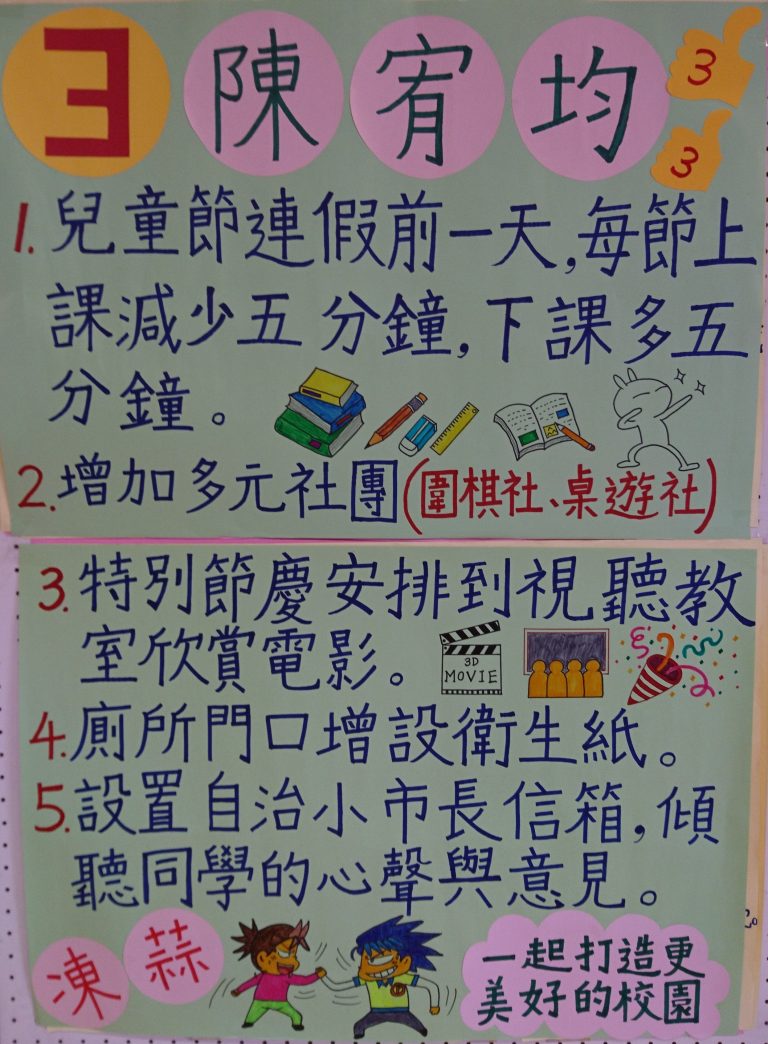 3 陳宥均
3
3
1. 兒童節連假前一天,每節上
課減少五分鐘,下課多五
分鐘。
2. 增加多元社團(圍棋社、桌遊社)
3. 特別節慶安排到視聽教
室欣賞電影。
3D
MOVIE
4. 廁所門口增設衛生紙。
5. 設置自治小市長信箱,傾
聽同學的心聲與意見。
凍蒜
一起打造更
美好的校園